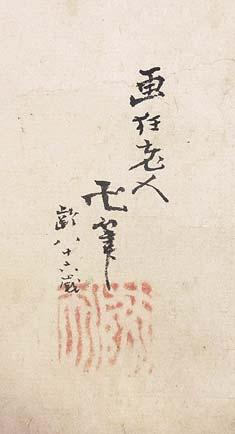 画狂老人
卍筆
齢八十六歳